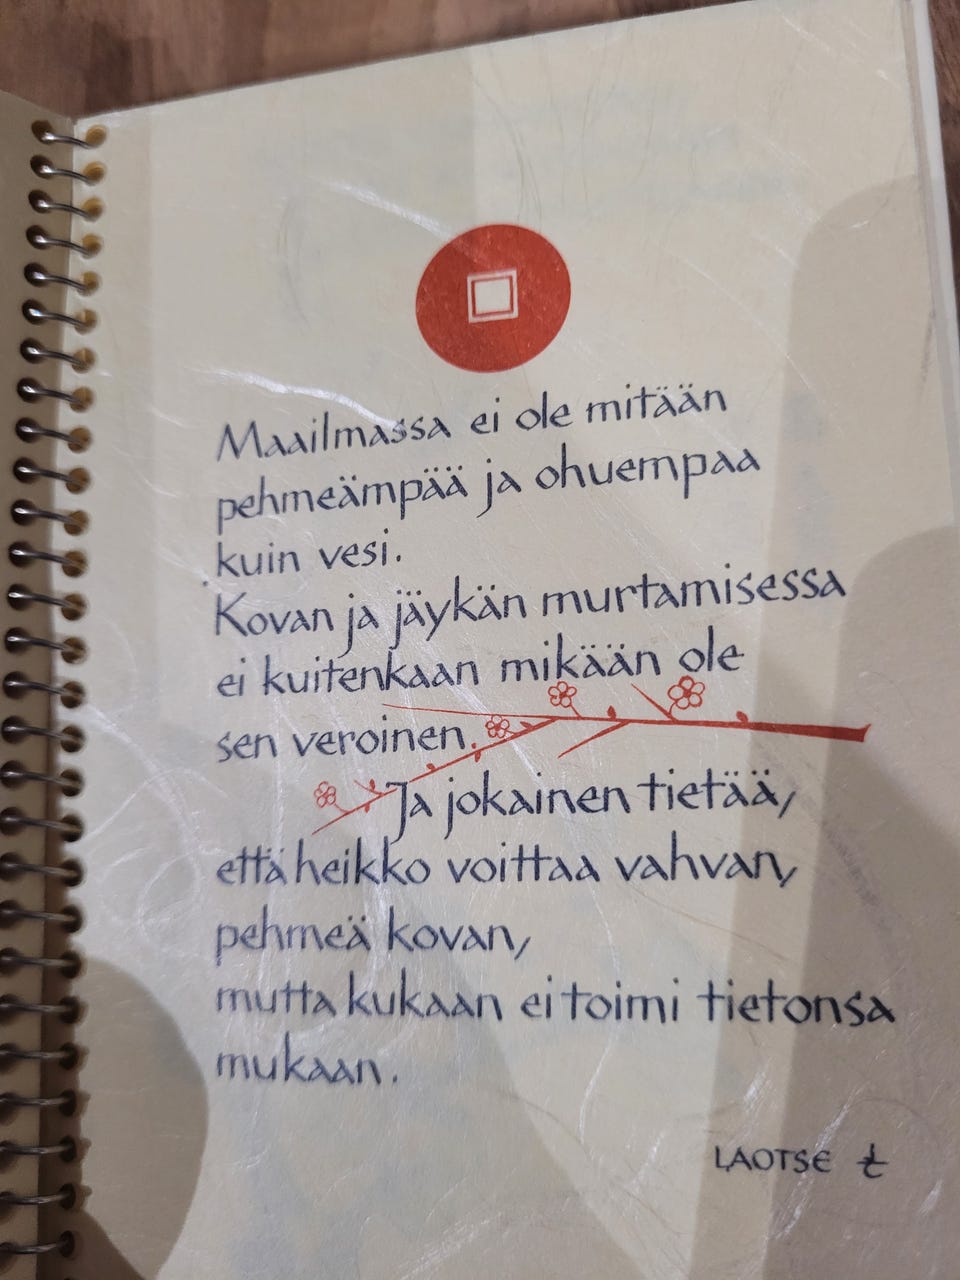 Maailmassa ei ole mitään
pehmeämpää ja ohuempaa
kuin vesi.
Kovan ja jäykän murtamisessa
ei kuitenkaan mikään ole
sen veroinen.
Ja jokainen tietää,
että heikko voittaa vahvan,
pehmeä kovan,
mutta kukaan ei toimi tietonsa
mukaan.
LAOTSE